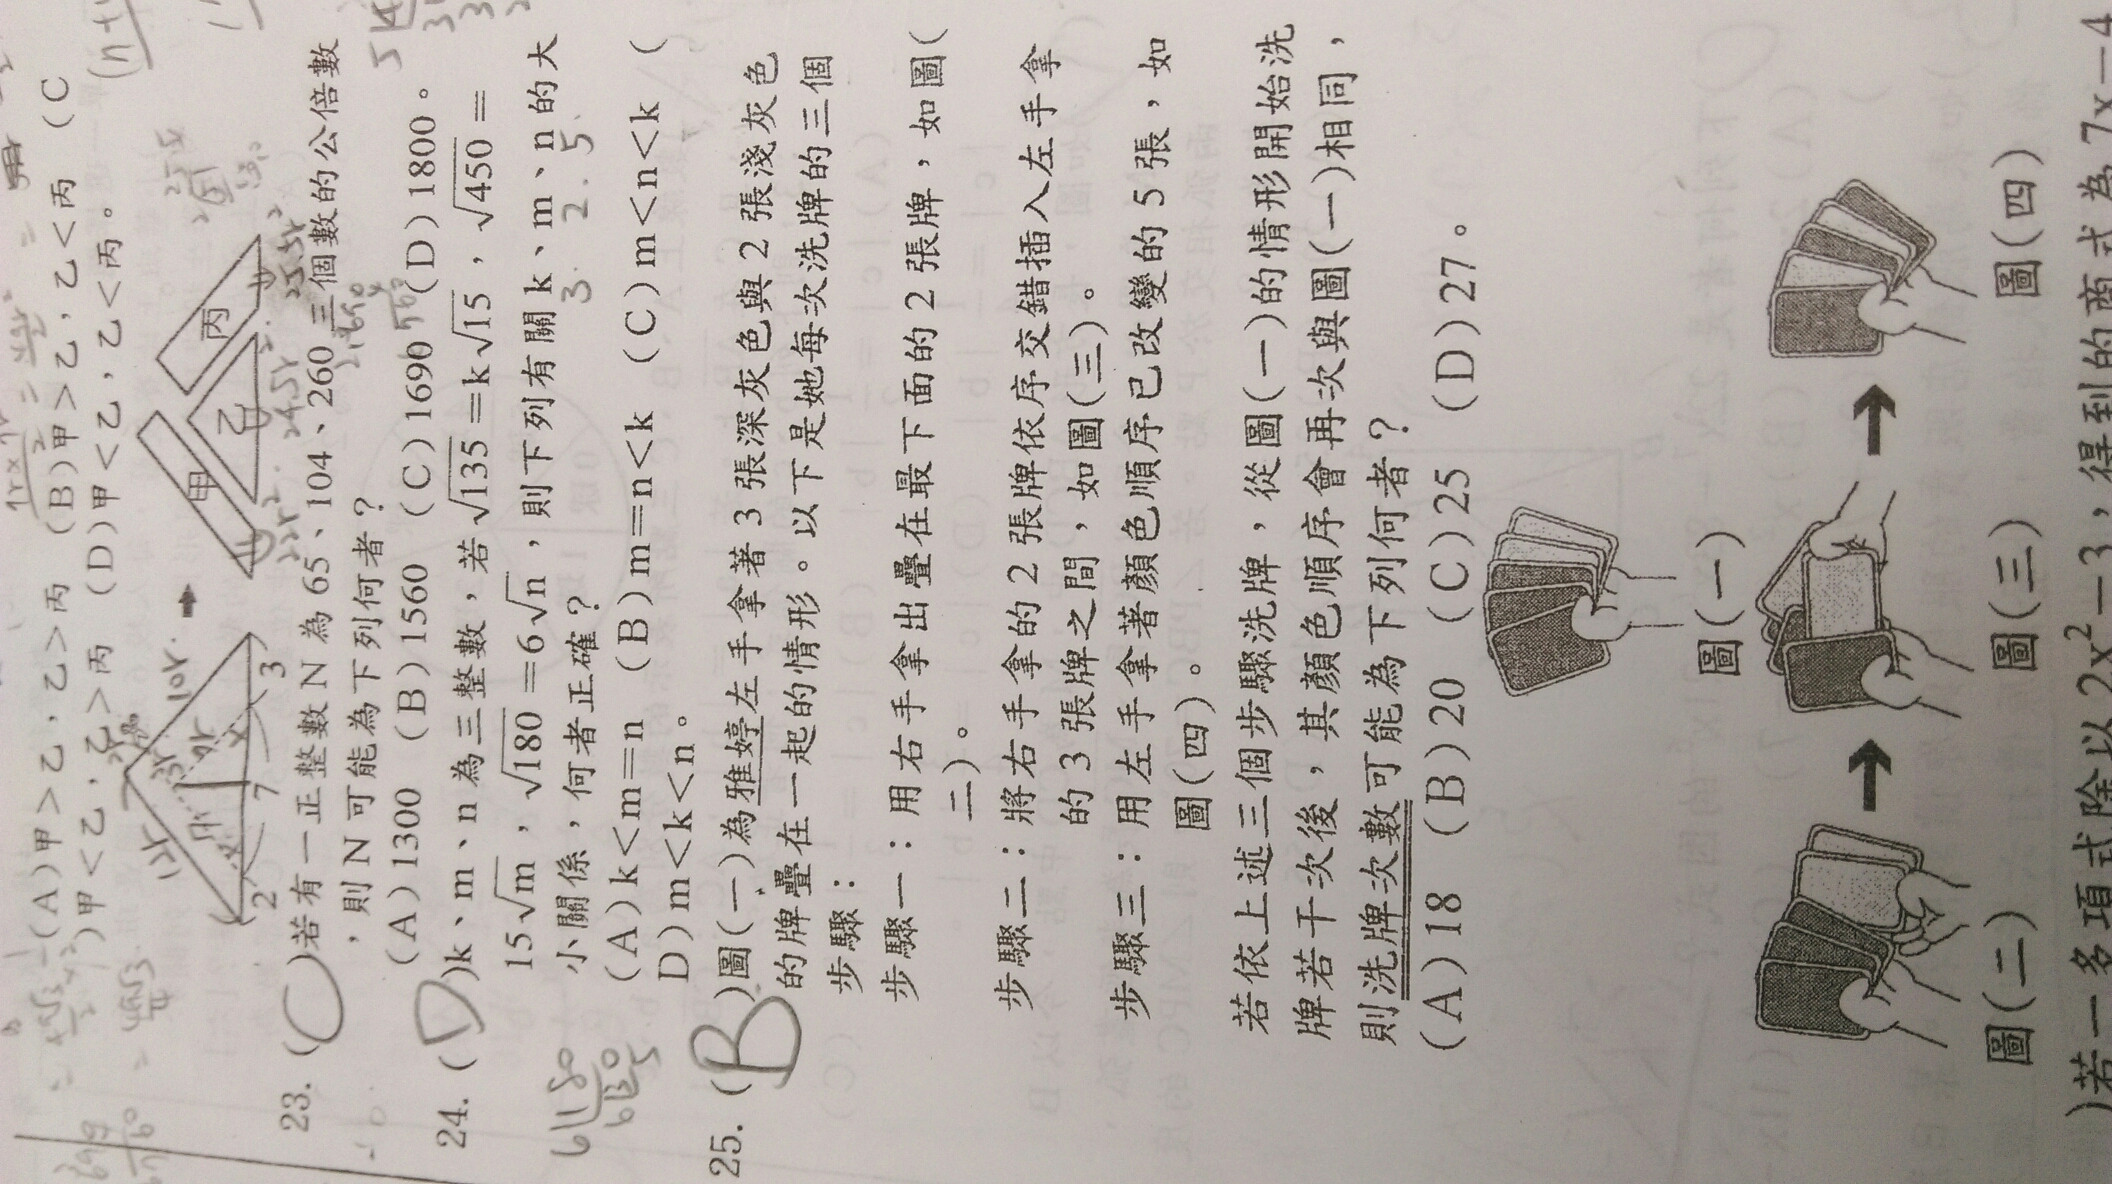 (A)甲>乙，乙>丙 (B)甲>乙，乙<丙 (C
)甲<乙，乙>丙 (D)甲<乙，乙<丙。
12r
10r
3r
2
7
3
甲
乙
丙
23. (C)若有一正整數 N 為 65、104、260 三個數的公倍數
，則 N 可能為下列何者？
(A)1300 (B)1560 (C)1690 (D)1800。
24. (D)k、m、n 為三整數，若√135＝k√15，√450＝
15√m，√180＝6√n，則下列有關 k、m、n 的大
3. 2. 5.
小關係，何者正確？
(A)k<m＝n (B)m＝n<k (C)m<n<k (
D)m<k<n。
25. (B)圖(一)為雅婷左手拿著 3 張深灰色與 2 張淺灰色
的牌疊在一起的情形。以下是她每次洗牌的三個
步驟：
步驟一：用右手拿出疊在最下面的 2 張牌，如圖(
二)。
步驟二：將右手拿的 2 張牌依序交錯插入左手拿
的 3 張牌之間，如圖(三)。
步驟三：用左手拿著顏色順序已改變的 5 張，如
圖(四)。
若依上述三個步驟洗牌，從圖(一)的情形開始洗
牌若干次後，其顏色順序會再次與圖(一)相同，
則洗牌次數可能為下列何者？
(A)18 (B)20 (C)25 (D)27。
圖(一)
圖(二)
圖(三)
圖(四)
)若一多項式除以 2x²－3，得到的商式為 7x－4